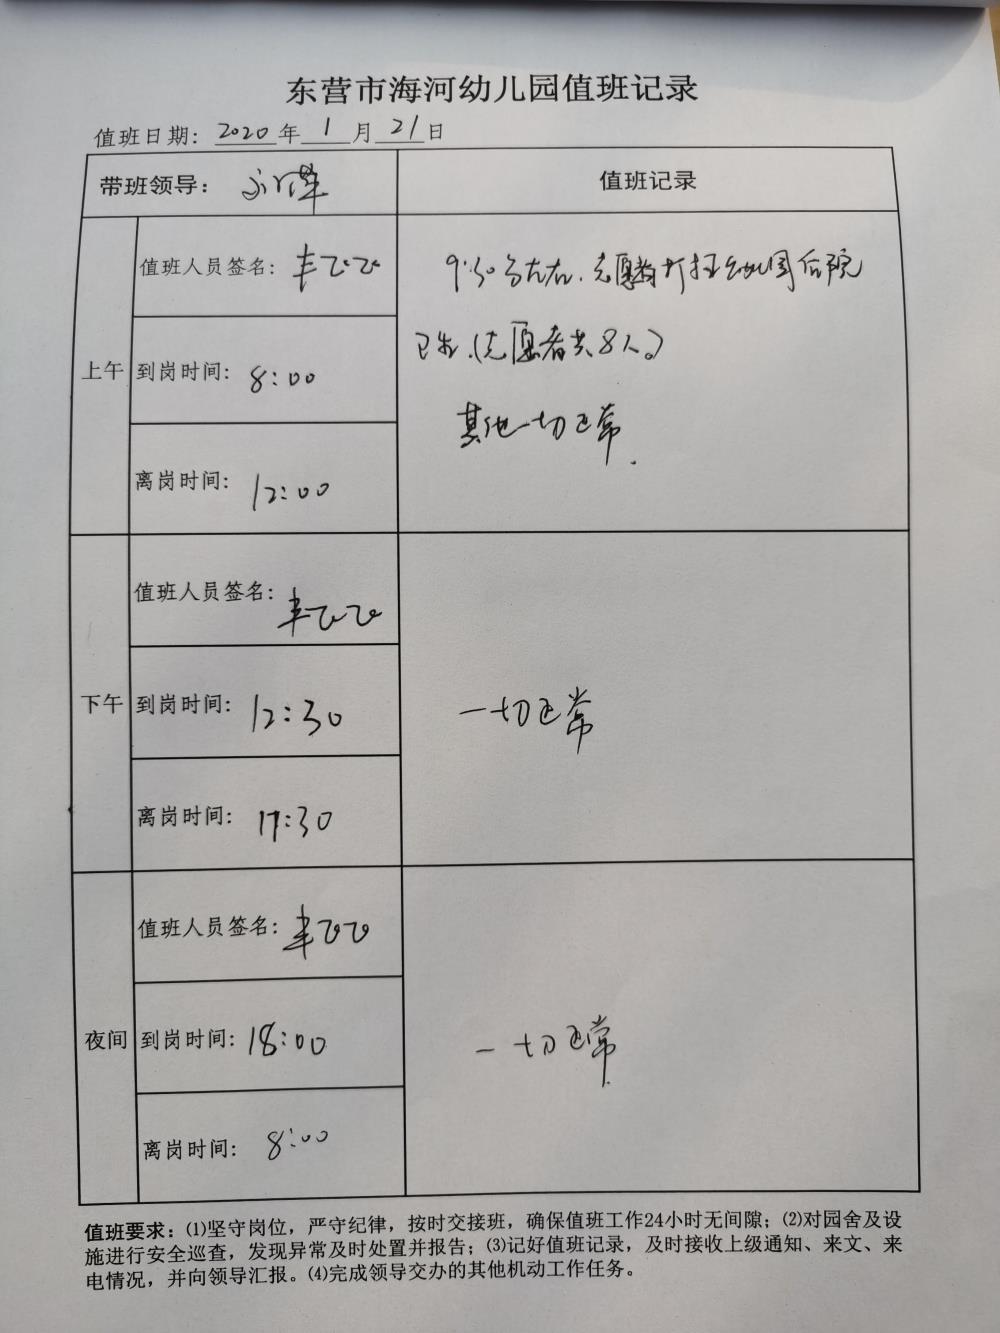 东营市海河幼儿园值班记录
值班日期：2020年1月21日
带班领导：
值班记录
上午
值班人员签名：丰飞飞
到岗时间：8:00
离岗时间：12:00
9:30分左右，志愿者打扫幼儿园后院
卫生。（志愿者共8人。）
其他一切正常.
下午
值班人员签名：丰飞飞
到岗时间：12:30
离岗时间：17:30
一切正常
夜间
值班人员签名：丰飞飞
到岗时间：18:00
离岗时间：8:00
一切正常
值班要求：⑴坚守岗位，严守纪律，按时交接班，确保值班工作24小时无间隙；⑵对园舍及设
施进行安全巡查，发现异常及时处置并报告；⑶记好值班记录，及时接收上级通知、来文、来
电情况，并向领导汇报。⑷完成领导交办的其他机动工作任务。